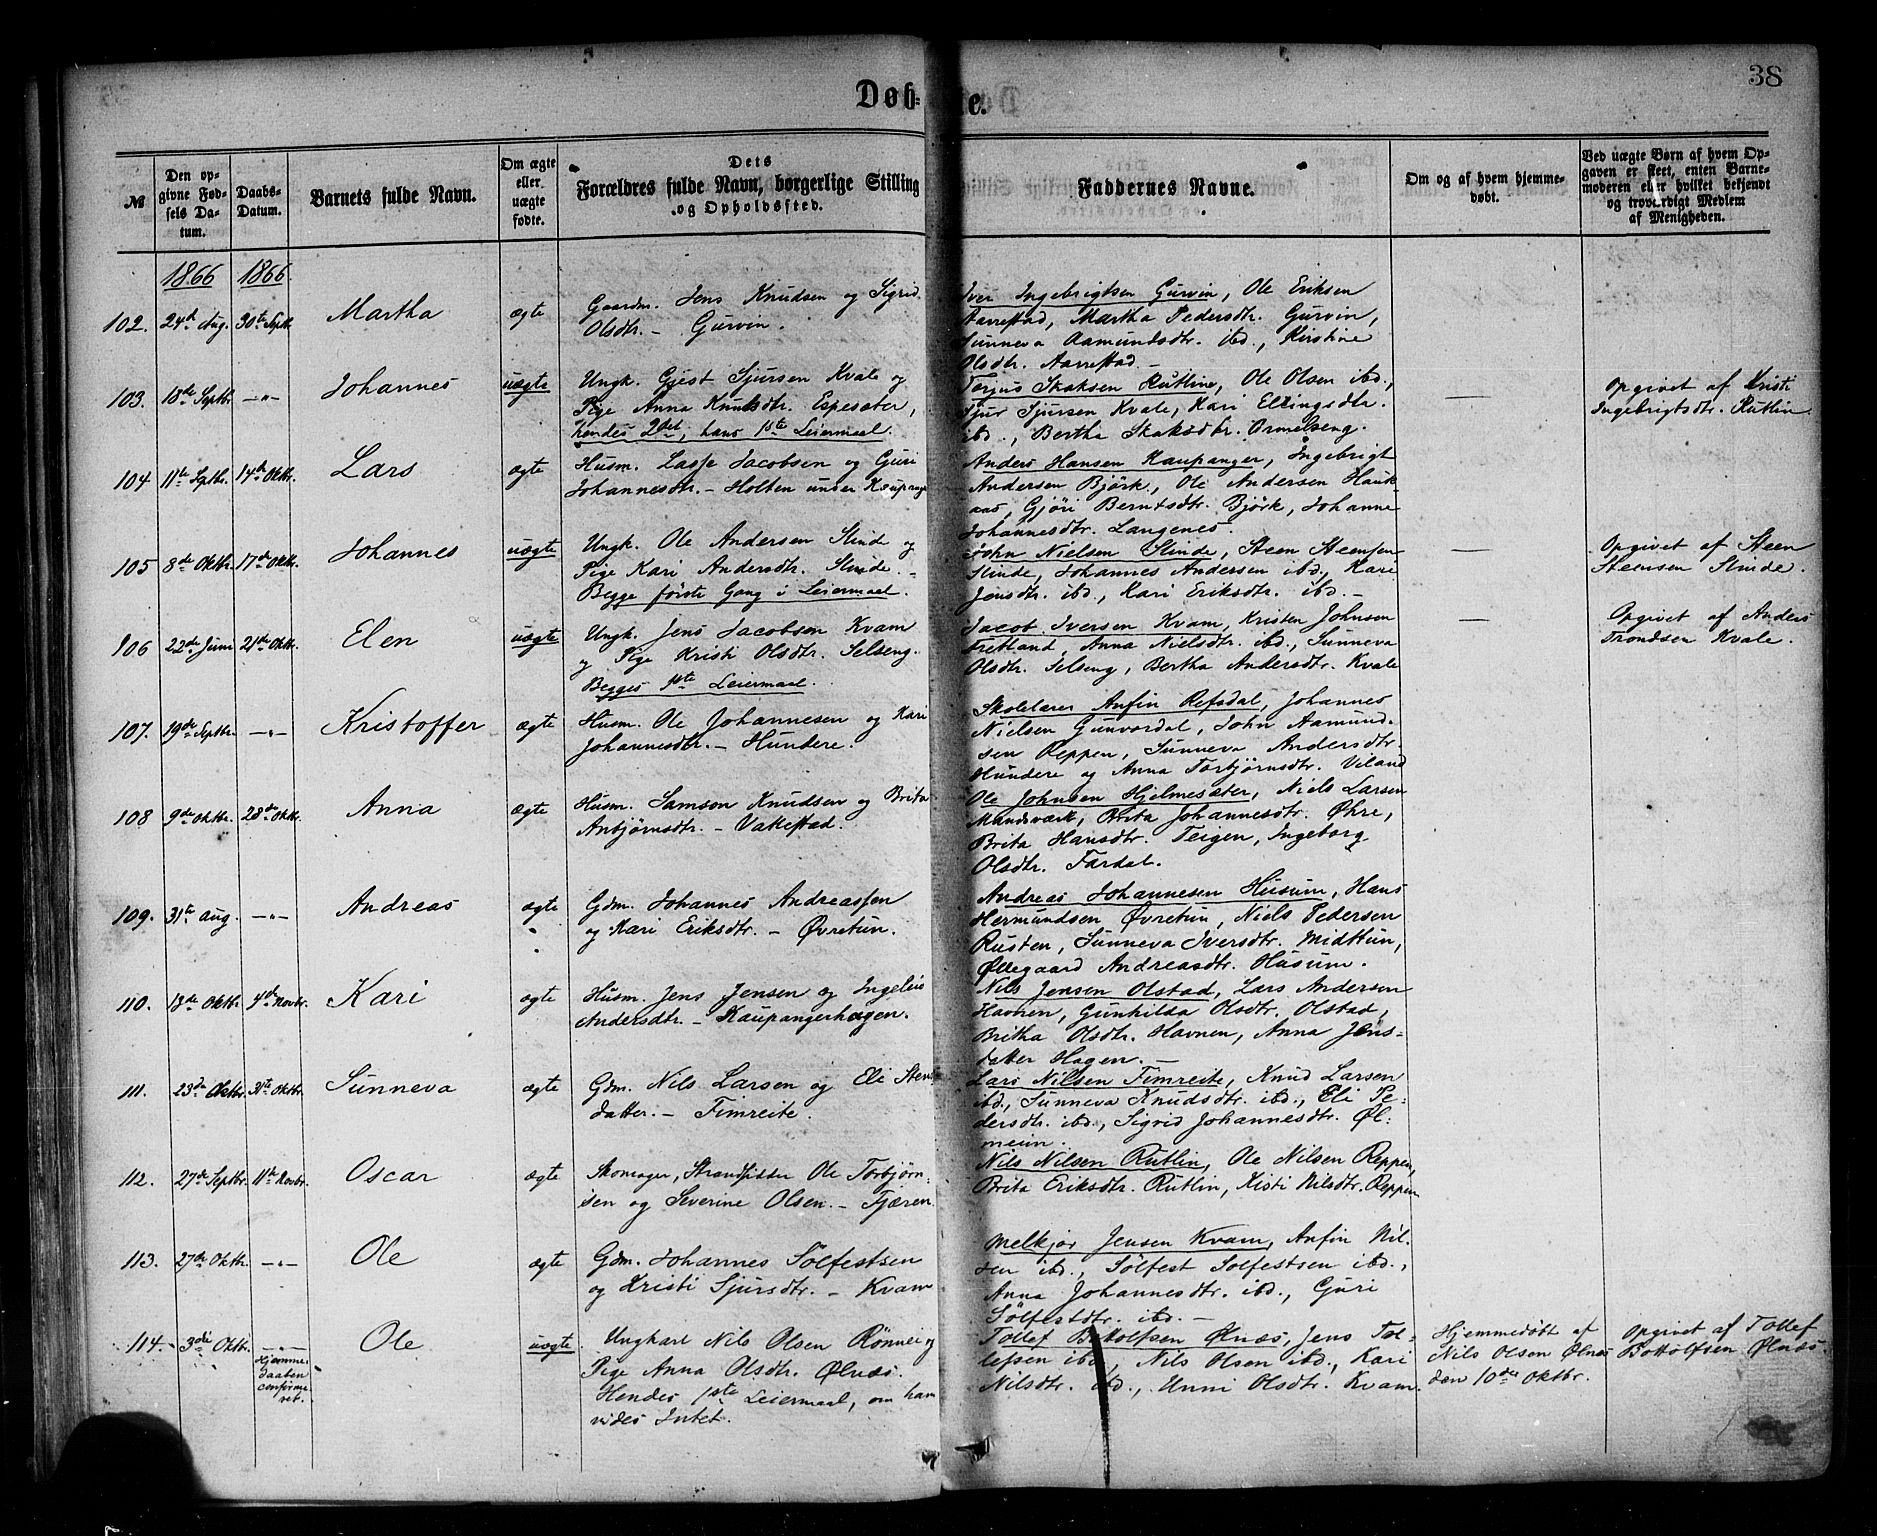 38
Døb-te.
№
Den op-
givne Fød-
sels Da-
tum.
Daabs-
Datum.
Barnets fulde Navn.
Om ægte
eller
uægte
fødte.
Dets
Forældres fulde Navn, borgerlige Stilling
og Opholdssted.
Faddernes Navne.
Om og af hvem hjemme-
døbt.
Ved uægte Børn af hvem Op-
gaven er skeet, enten Barne-
moderen eler hvilket bekjendt
og troværdigt Medlem
af Menigheden.
1866 1866.
102. 24de Aug. 30te Septbr. Martha ægte
Gaardm. Jens Knudsen og Sigrid
Olsdtr. - Gurvin.
Iver Ingebrigtsen Gurvin, Ole Eriksen
Aarrestad, Martha Pedersdtr. Gurvin,
Sunneva Aamundsdtr. ibd., Kirstine
Olsdtr. Aarrestad. -
103. 18de Septbr. -„- Johannes uægte
Ungk. Gjest Sjursen Kvale og
Pige Anna Knutsdtr. Espesæter,
hendes 2det, hans 1ste Leiermaal.
Torjus Skaksen Rutlin, Ole Olsen ibd.,
Sjur Sjursen Kvale, Kari Ellingsdtr.
ibd., Bertha Skaksdtr. Ormelseng.
—
Opgivet af Kristi
Ingebrigtsdtr. Rutlin
104. 11te Septbr. 14de Oktbr. Lars ægte
Husm. Lasse Jacobsen og Guri
Johannesdtr. - Holten under Kaupange
Anders Hansen Kaupanger, Ingebrigt
Andersen Björk, Ole Andersen Hauk-
aas, Gjöri Berntsdtr. Björk, Johanne
Johannesdtr. Langenes.
105 8de Oktbr. 17de Oktbr. Johannes uægte
Ungk. Ole Andersen Slinde og
Pige Kari Andersdtr. Slinde. -
Begge förste Gang i Leiermaal.
John Nielsen Slinde, Steen Steensen
Slinde, Johannes Andersen ibd, Kari
Jensdtr. ibd., Kari Eriksdtr. ibd. -
—
Opgivet af Steen
Steensen Slinde.
106 22de Juni 21de Oktbr. Elen uægte
Ungk. Jens Jacobsen Kvam
og Pige Kristi Olsdtr. Selseng.
Begges 1ste Leiermaal.
Jacob Iversen Kvam, Kristen Johnsen
Fretland, Anna Nielsdtr. ibd., Sunneva
Olsdtr. Selseng, Bertha Andersdtr. Kvale
—
Opgivet af Anders
Trondsen Kvale.
107. 19de Septbr. -„- Kristoffer ægte
Husm. Ole Johannesen og Kari
Johannesdtr. - Hundere.
Skolelærer Anfin Refsdal, Johannes
Nielsen Gunvordal, John Aamund-
sen Reppen, Sunneva Andersdtr
Hundere og Anna Torbjörnsdtr. Viland
108 9de Oktbr. 28de Oktbr. Anna ægte
Husm. Samson Knudsen og Brita
Anbjörnsdtr. - Vakestad.
Ole Johnsen Hjelmesæter, Niels Larsen
Mundsværk, Brita Johannesdtr. Øhre,
Brita Hansdtr. Teigen, Ingeborg
Olsdtr. Fardal.
109. 31te Aug. -„- Andreas ægte
Gdm. Johannes Andreassen
og Kari Eriksdtr. - Øvretun.
Andreas Johannesen Husum, Hans
Hermundsen Øvretun, Niels Pedersen
Rusten, Sunneva Iversdtr. Midttun,
Øllegaard Andreasdtr. Husum.
110. 13de Oktbr. 4de Novbr. Kari ægte
Husm. Jens Jensen og Ingeleis
Andersdtr. - Kaupangerhagen.
Nils Jensen Olstad, Lars Andersen
Havnen, Gunhilda Olsdtr. Olstad,
Britha Olsdtr. Havnen, Anna Jens-
datter Hagen. -
111. 23de Oktbr. 31te Oktbr. Sunneva ægte
Gdm. Nils Larsen og Eli Sten
datter. - Fimreite.
Lars Nilsen Fimreite, Knud Larsen
ibd., Sunneva Knudsdtr. ibd., Eli Pe-
dersdtr. ibd., Sigrid Johannesdtr. Øl-
meim.
112. 27de Septbr. 11te Novbr. Oscar ægte
Skomager, Strandsidder Ole Torbjörn-
sen og Severine Olsen. - Fjæren
Nils Nilsen Rutlin, Ole Nilsen Reppen,
Brita Eriksdtr. Rutlin, Kisti Nilsdtr. Reppen
113. 27de Oktbr. -„- Ole ægte
Gdm. Johannes Sölfestsen
og Kristi Sjursdtr. - Kvam
Melkjor Jensen Kvam, Anfin Nil-
sen ibd., Sölfest Solfestsen ibd.,
Anna Johannesdtr. ibd., Guri
Sölfestdtr. ibd. -
114. 3die Oktbr. -„-
Hjemme
daaben
confirme
ret.
Ole uægte
Ungkarl Nils Olsen Rönnei og
Pige Anna Olsdtr. Ølnæs.
Hendes 1ste Leiermaal, om ham
vides Intet.
Tollef Botolfsen Ølnæs, Jens Tol-
lefsen ibd, Nils Olsen ibd., Kari
Nilsdtr. ibd., Unni Olsdtr. Kvam.
Hjemmedöbt af
Nils Olsen Ølnæs
den 10de Oktbr.
Opgivet af Tollef
Bottolfsen Ølnæs.